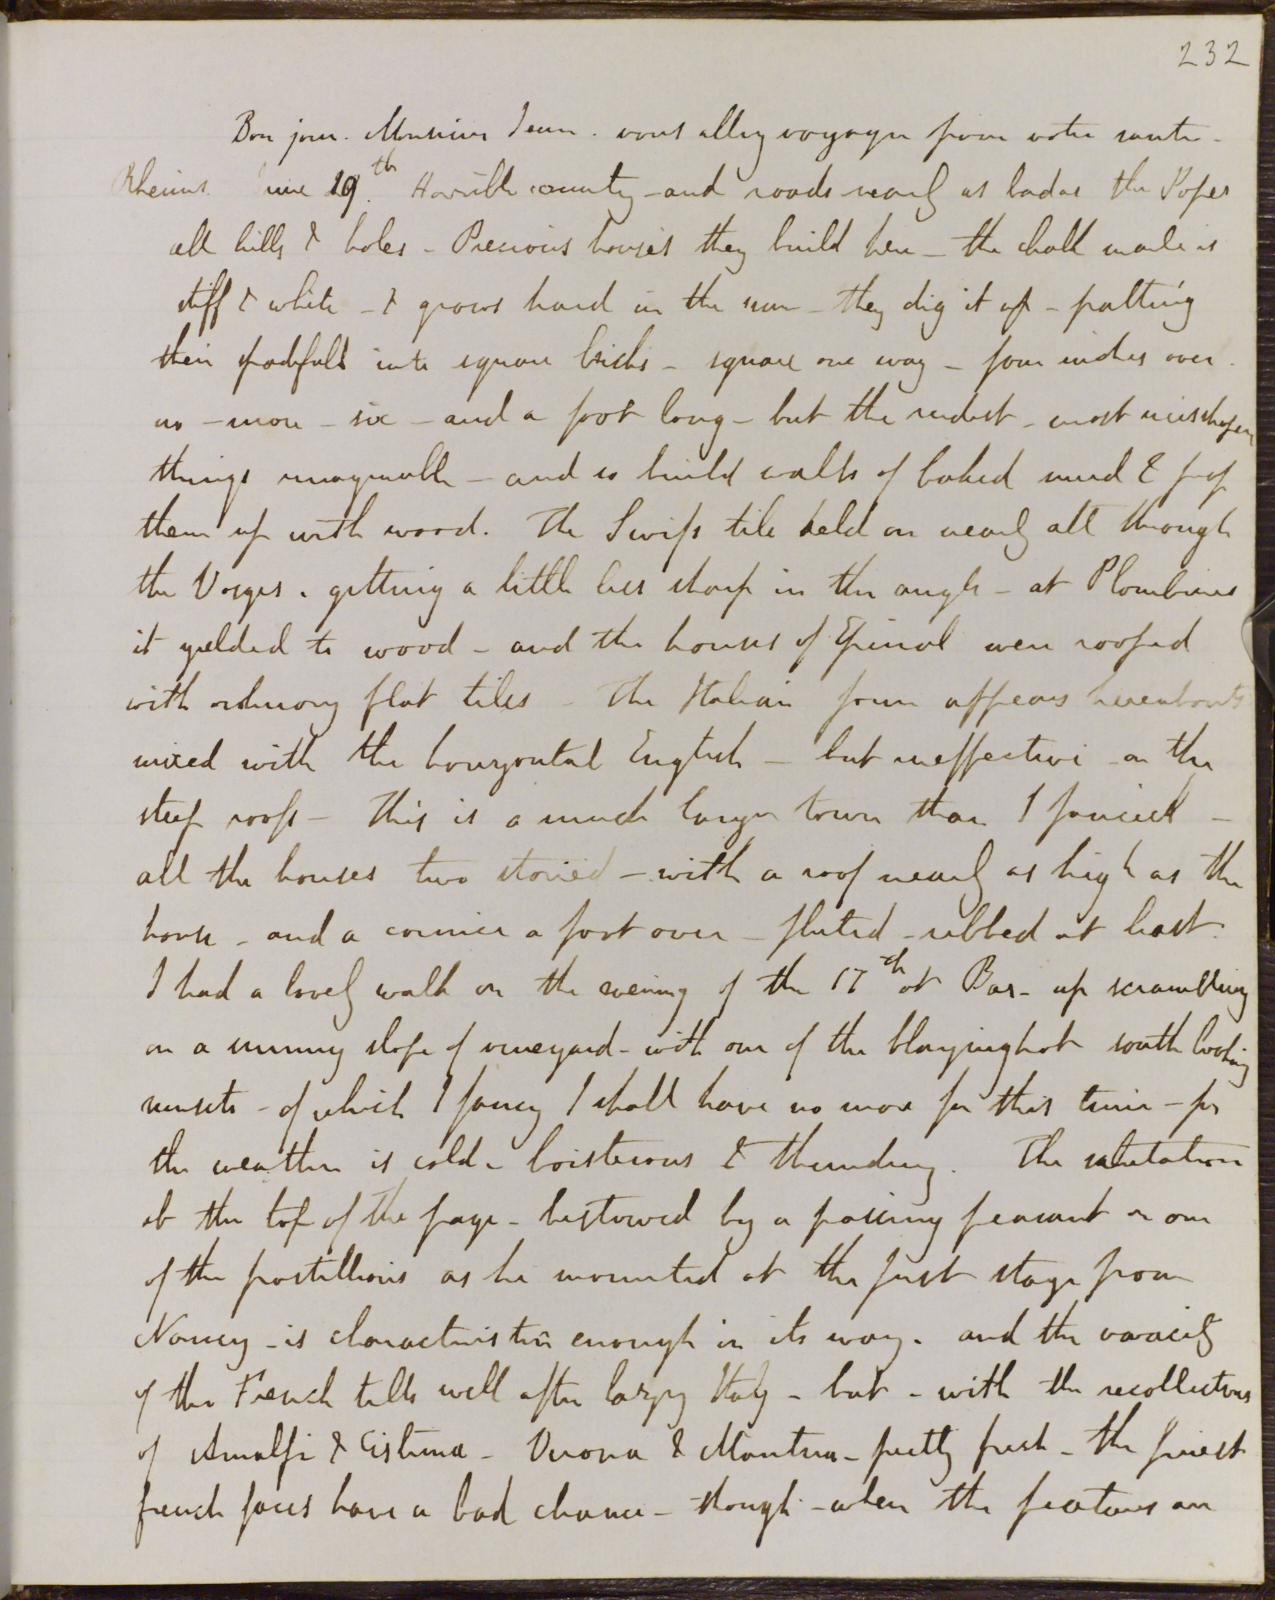 232
Bon jour. Monsieur Jean. vous allez voyager pour votre sante -
Rheims. June 19th. Horrible country - and roads nearly as bad as the Popes
all hills & holes - Precious houses they build here - the chalk marle is
stiff & white - & grows hard in the sun - they dig it up - patting
their spadefulls into square bricks - square one way - four inches over.
no - more - six - and a foot long - but the rudest - most misshapen
things imaginable - and so build walls of baked mud & prop
them up with wood. The Swiss tile held on nearly all through
the Vosges. getting a little less sharp in the angle - at Plombieres
it yielded to wood - and the houses of Epinal were roofed
with ordinary flat tiles - The Italian form appears hereabouts
mixed with the horizontal English - but ineffective on the
steep roofs - This is a much larger town than I fancied -
all the houses two storied - with a roof nearly as high as the
house - and a cornice a foot over - fluted - ribbed at least.
I had a lovely walk on the evening of the 17th at Bar - up scrambling
on a sunny slope of vineyard - with one of the blazing hot south looking
sunsets - of which I fancy I shall have no more for this time - for
the weather is cold - boisterous & thundery. The salutation
at the top of the page - bestowed by a passing peasant on one
of the postillions as he mounted at the first stage from
Nancy - is characteristic enough in its way. and the vivacity
of the French tells well after lazy Italy - but - with the recollections
of Amalfi & Cisterna - Verona & Mantua - pretty fresh - the finest
french faces have a bad chance - though - when the features are